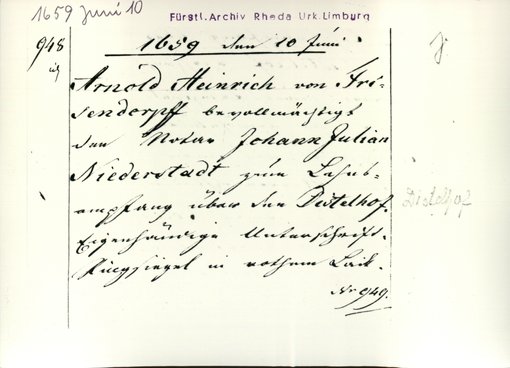 1659 Juni 10
Fürstl. Archiv Rheda Urk. Limburg
948
1659 den 10 Juni
Arnold Heinrich von Fri-
sendorpff bevollmächtigt
den Notar Johann Julian
Niederstadt zum Lehns-
empfang über den Distelhof.
Eigenhändige Unterschrift.
Ringsiegel in rothem Lack.
Nr 949.
Distelhof